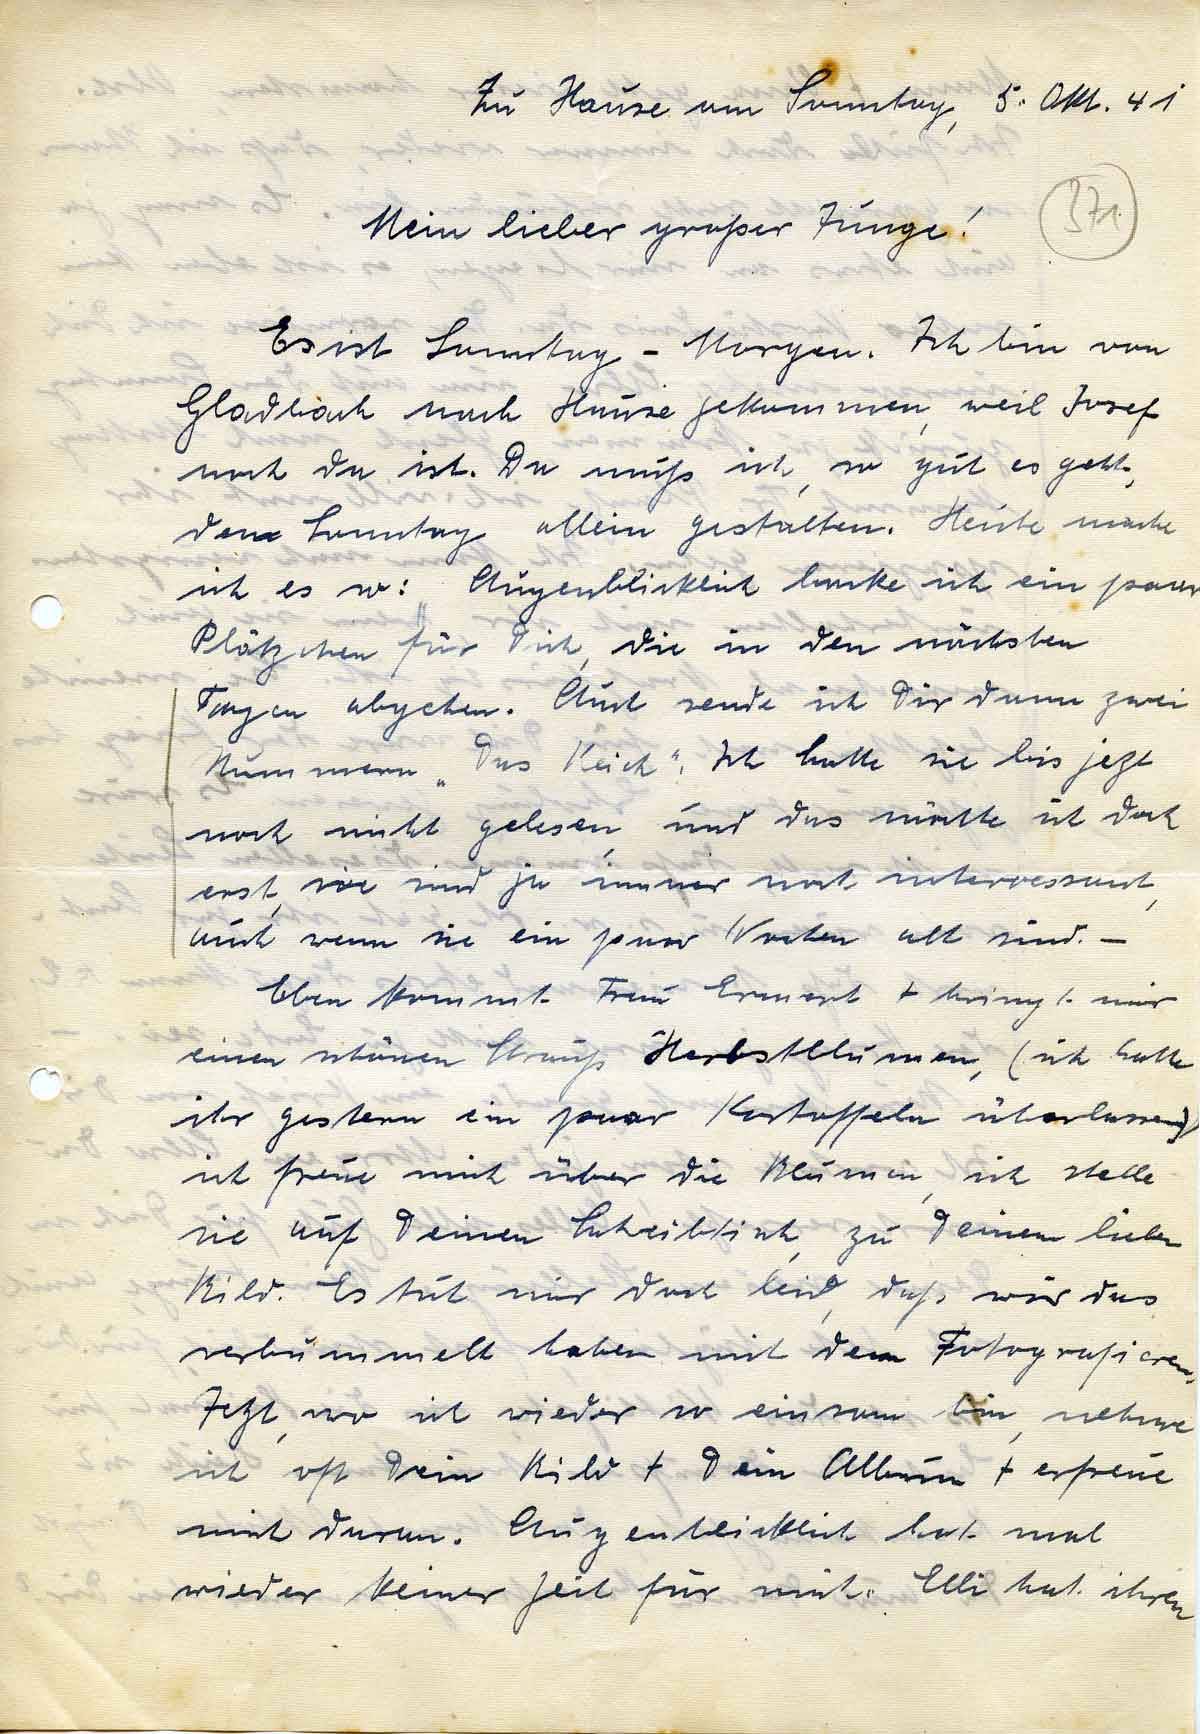 Zu Hause am Sonntag, 5. Okt. 41
371.
Mein lieber großer Junge!
Es ist Sonntag - Morgen. Ich bin von
Gladbach nach Hause gekommen, weil Josef
noch da ist. Da muß ich, so gut es geht,
den Sonntag allein gestalten. Heute mache
ich es so: Augenblicklich backe ich ein paar
Plätzchen für Dich, die in den nächsten
Tagen abgehen. Auch sende ich Dir dann zwei
Nummern „Das Reich". Ich hatte sie bis jetzt
noch nicht gelesen, und das möchte ich doch
erst, sie sind ja immer noch interessant,
auch wenn sie ein paar Wochen alt sind. -
Eben kommt Frau Ermert + bringt mir
einen schönen Strauß Herbstblumen, (ich hatte
ihr gestern ein paar Kartoffeln überlassen)
ich freue mich über die Blumen, ich stelle
sie auf Deinen Schreibtisch, zu Deinem lieben
Bild. Es tut mir doch leid, daß wir das
verbummelt haben mit dem Fotografieren.
Jetzt, wo ich wieder so einsam bin, nehme
ich oft Dein Bild + Dein Album + erfreue
mich daran. Augenblicklich hat mal
wieder keiner Zeit für mich. Elli hat ihren